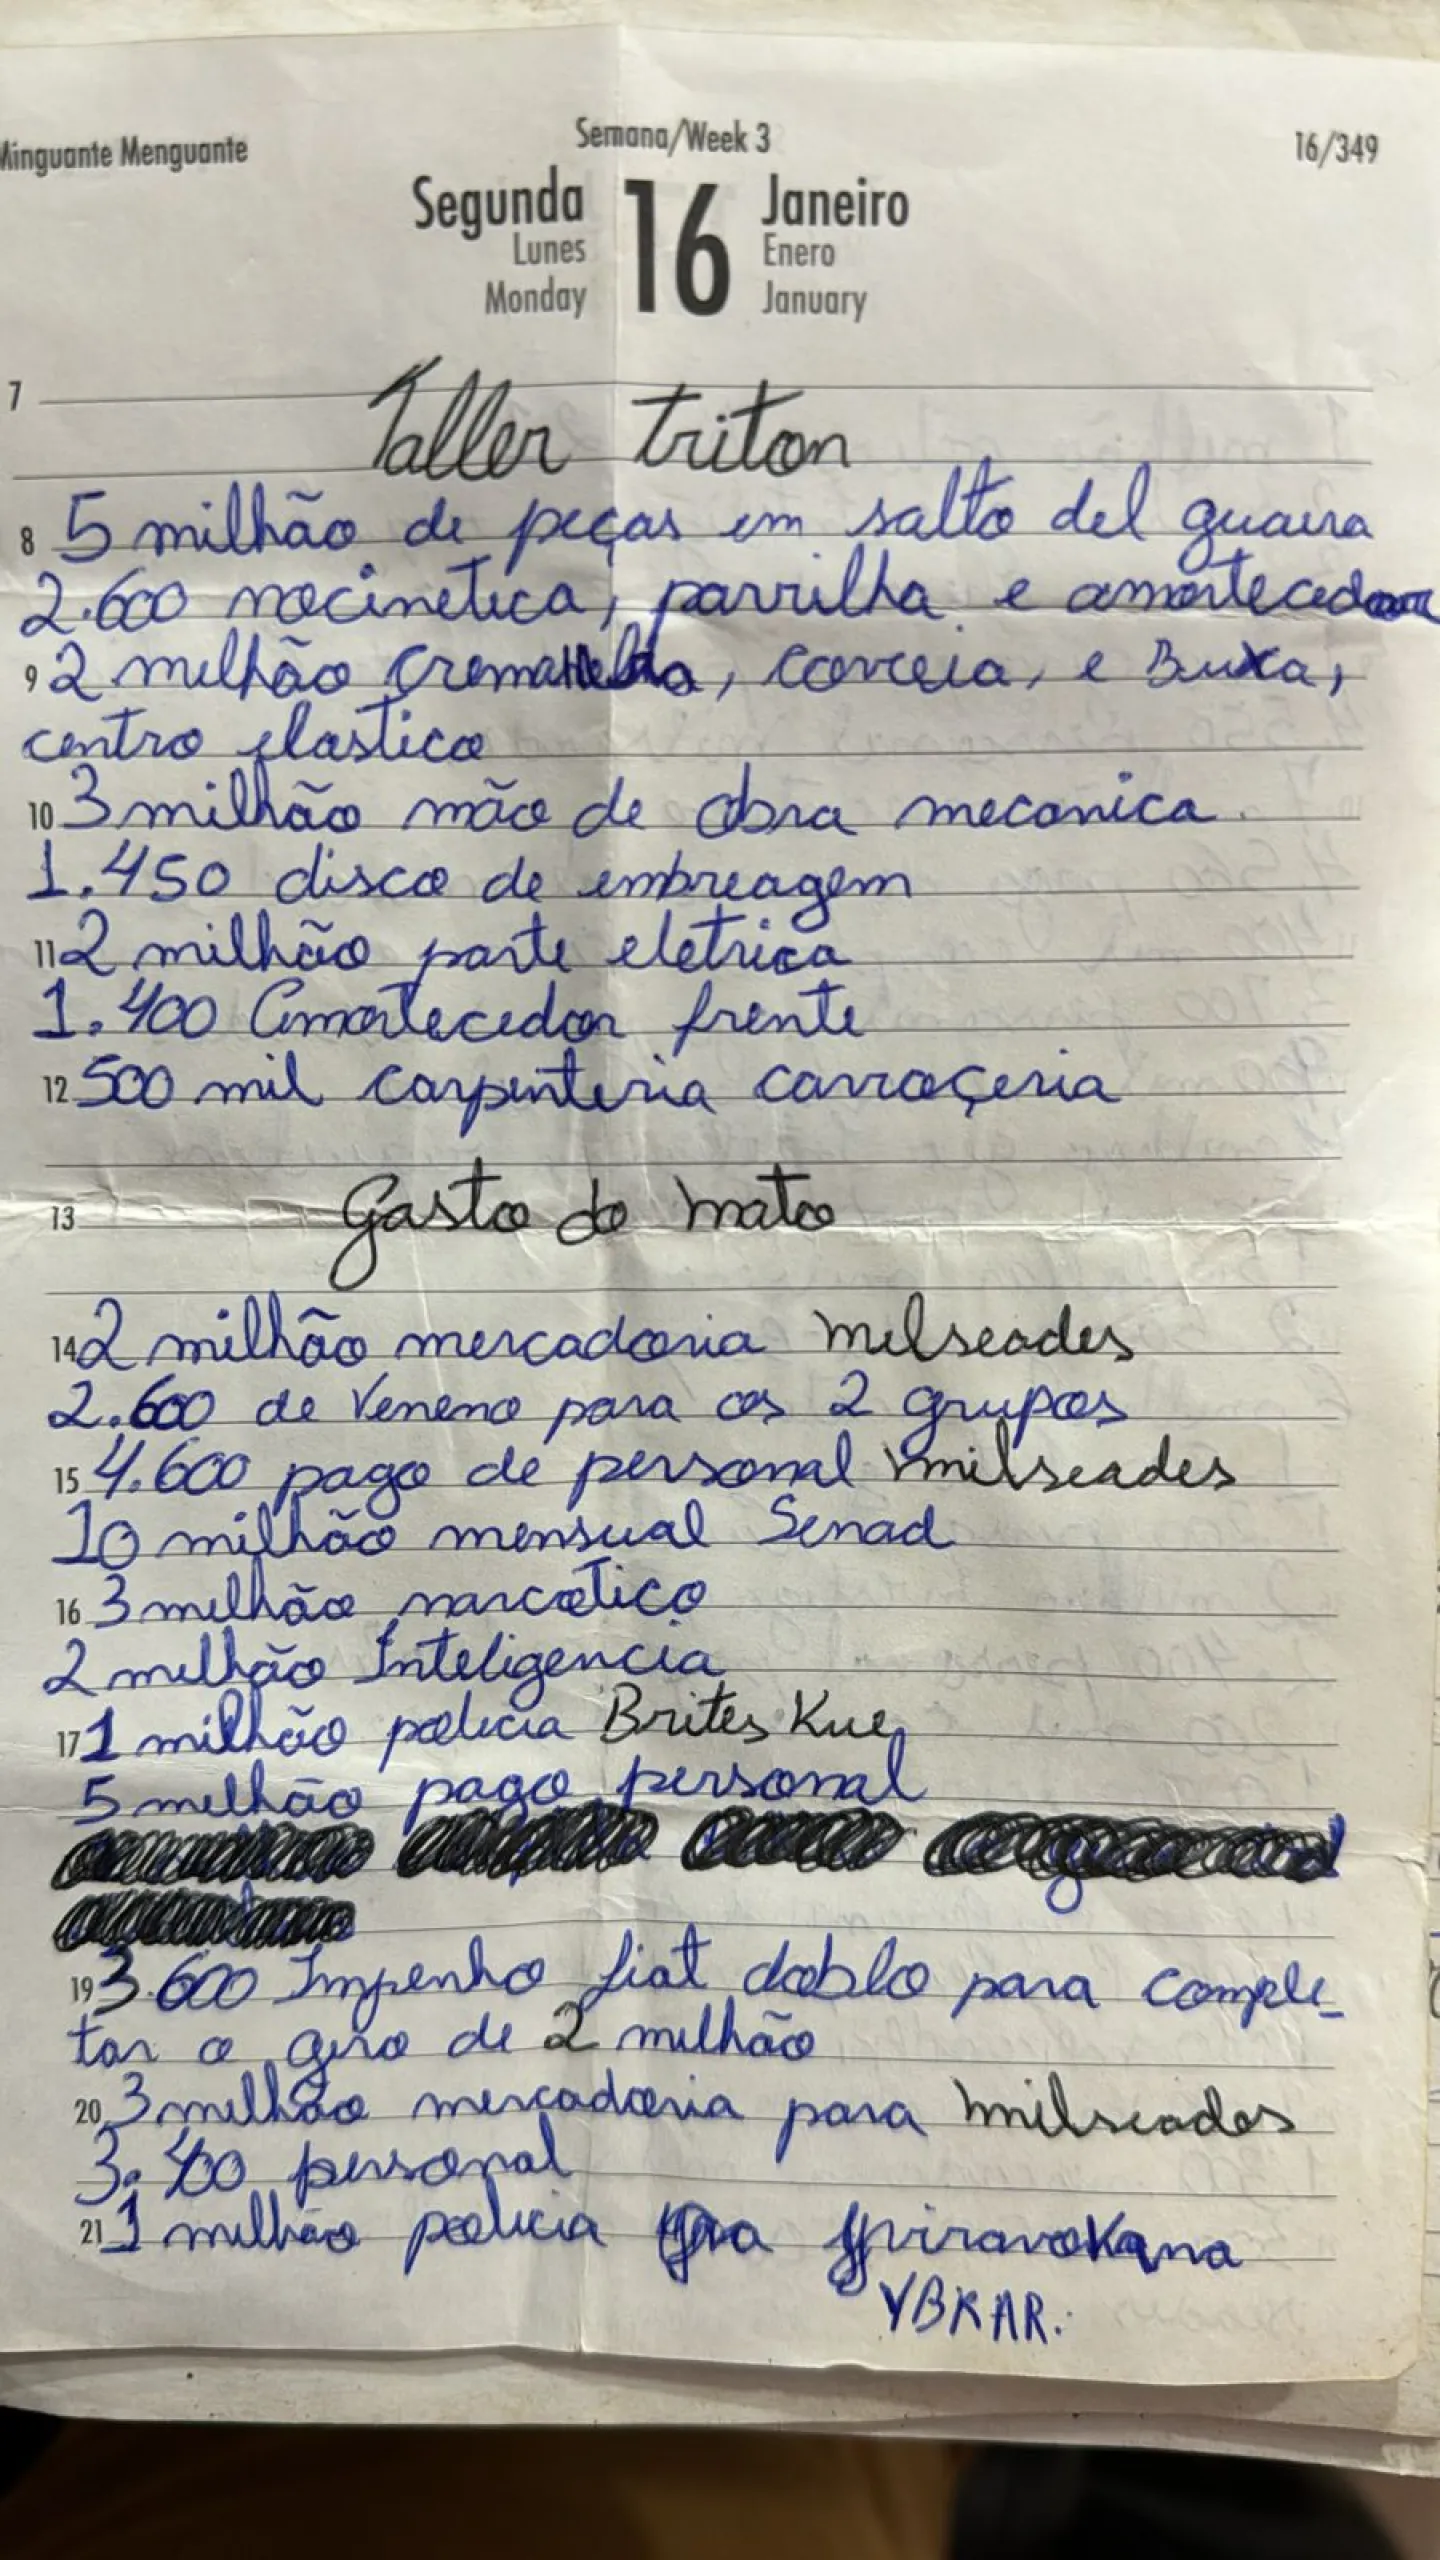 Minguante Menguante
Semana/Week 3
16/349
Segunda 16 Janeiro
Lunes Enero
Monday January
7
Taller triton
8 5 milhão de peças em salto del guaira
2.600 nocinetica, parrilha e amortecedor
9 2 milhão cremalhela, correia, e Buxa,
centro elastico
10 3 milhão mão de obra mecanica
1.450 disco de embreagem
11 2 milhão parte eletrica
1.400 Amortecedor frente
12 500 mil carpenteria carroçeria
13 Gasto do mato
14 2 milhão mercadoria melseades
2.600 de Veneno para os 2 grupos
15 4.600 pago de personal milseades
10 milhão mensual Senad
16 3 milhão narcotico
2 milhão Inteligencia
17 1 milhão policia Brites Kue
5 milhão pago personal
19 3.600 Impenho fiat doblo para comple-
tar o giro de 2 milhão
20 3 milhão mercadoria para milseados
3.400 personal
21 1 milhão policia
YBKAR.